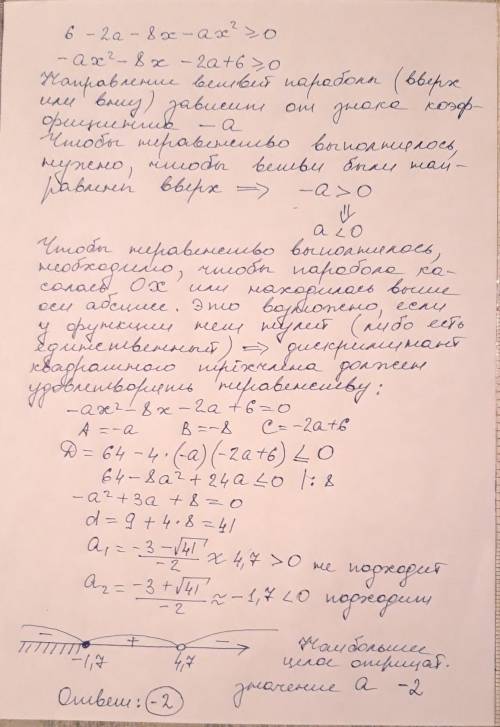 6 - 2a - 8x - ax² ≥ 0
-ax² - 8x - 2a + 6 ≥ 0
Направление ветвей параболы (вверх
или вниз) зависит от знака коэф-
фициента -a
Чтобы неравенство выполнялось,
нужно, чтобы ветви были нап-
равлены вверх ⟹ -a > 0
⇓
a < 0
Чтобы неравенство выполнялось,
необходимо, чтобы парабола ка-
салась OX или находилась выше
оси абсцисс. Это возможно, если
у функции нет нулей (либо есть
единственный) ⟹ дискриминант
квадратного трёхчлена должен
удовлетворять неравенству:
-ax² - 8x - 2a + 6 = 0
A = -a B = -8 C = -2a + 6
D = 64 - 4·(-a)(-2a + 6) ≤ 0
64 - 8a² + 24a ≤ 0 |: 8
-a² + 3a + 8 = 0
d = 9 + 4·8 = 41
a₁ = (-3 - √41)/-2 ≈ 4,7 > 0 не подходит
a₂ = (-3 + √41)/-2 ≈ -1,7 < 0 подходит
- + -
-1,7 4,7
Наибольшее
целое отрицат.
значение a -2
Ответ: -2